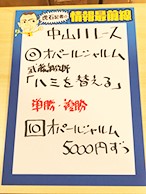 情報最前線
中山11レース
◎オパールシャルム
武藤調教師
「ハミを替える」
単勝・複勝
10 オパールシャルム
5000円ずつ